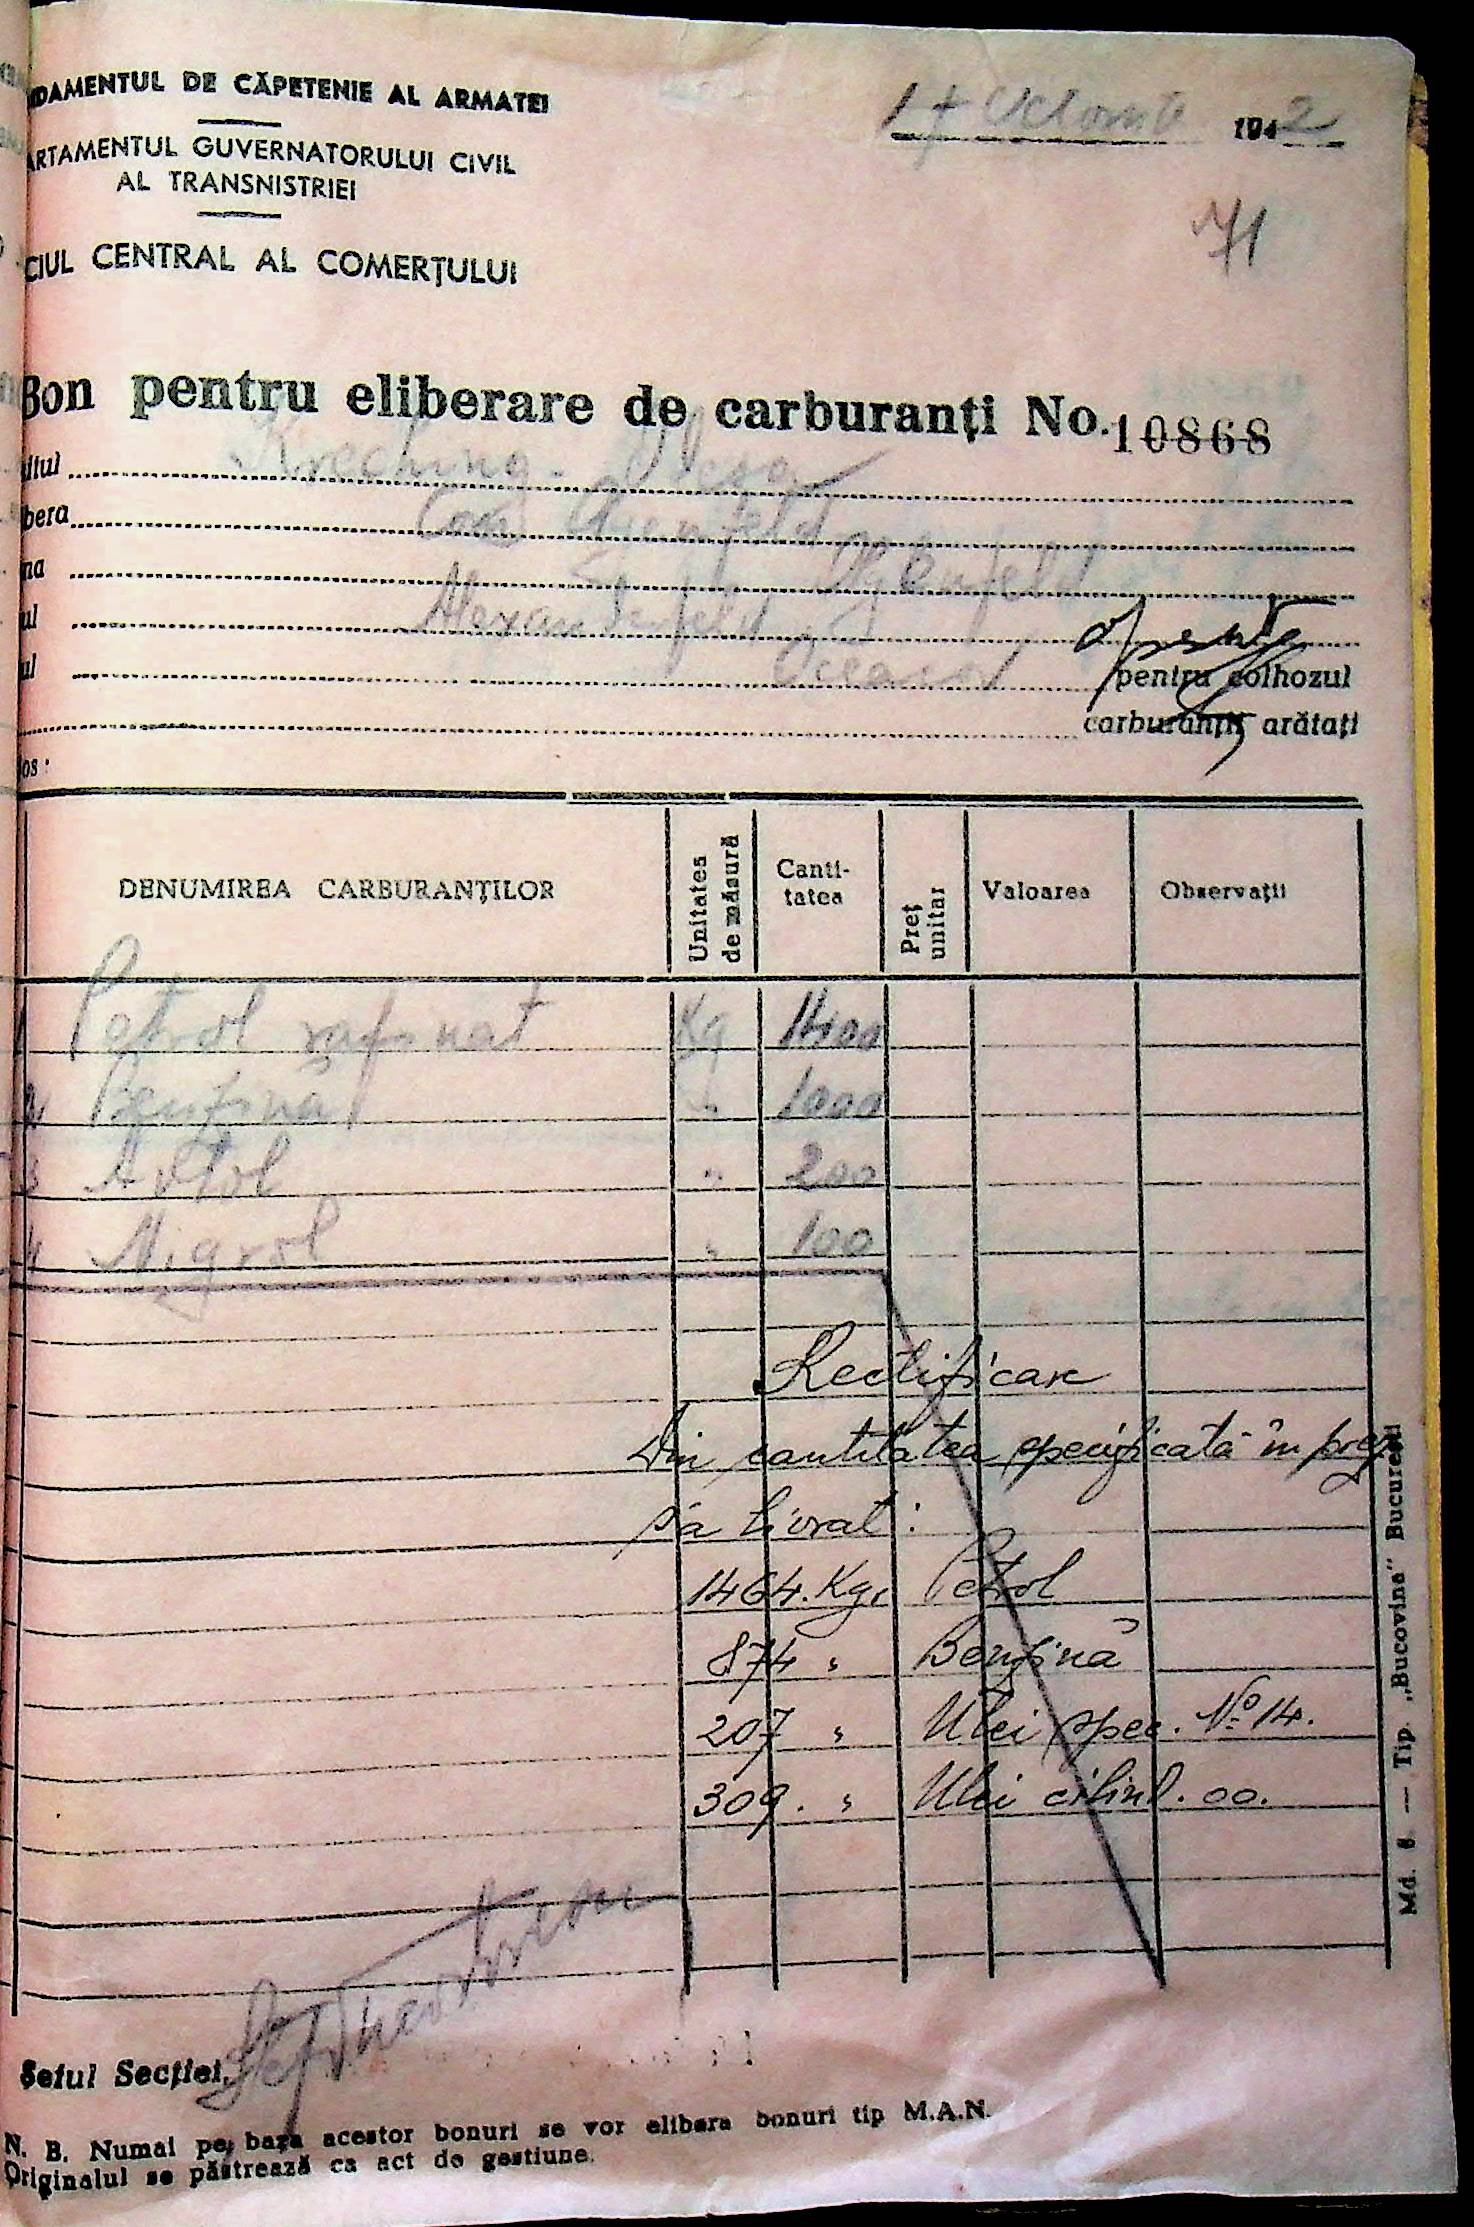 NDAMENTUL DE CĂPETENIE AL ARMATEI
ARTAMENTUL GUVERNATORULUI CIVIL
AL TRANSNISTRIEI
CIUL CENTRAL AL COMERŢULUI
17 Octombrie 1942
71
Bon pentru eliberare de carburanţi No. 10868
itul
bera
na
ul Alexanderfeld
ul
pentru colhozul
carburanţii arătaţi
os :
DENUMIREA CARBURANŢILOR Unitatea de măsură Canti-tatea Preţ unitar Valoarea Observaţii
1 Petrol rafinat Kg 1400
2 Benzina " 1000
3 Avtol " 200
4 Nigrol " 100
Rectificare
Din cantitatea specificată în prez
s'a livrat :
1464. Kg. Petrol
874 " Benzină
207 " Ulei spec. No 14.
309. " Ulei cilind. 00.
Şeful Secţiei,
N. B. Numai pe baza acestor bonuri se vor elibera bonuri tip M.A.N.
Originalul se păstrează ca act de gestiune.
Md. 6. — Tip. „Bucovina" Bucureşti